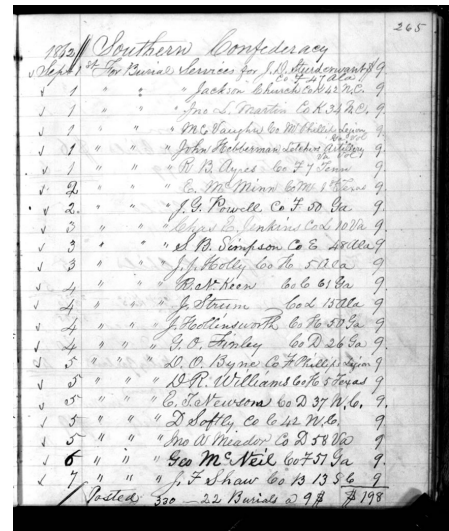 265
1862 Southern Confederacy
Sept 1st For Burial Services for J. D. Sturdewant $ 9
Co F 47 Ala
√ 1 " " " Jackson Church Co K 42 N.C. 9
1 " " " Jno L. Martin Co K 34 N.C. 9.
√ 1 " " " M. C. Vaughn Co M Phillips Legion 9
√ 1 " " " John Hobberman Letcher Artillery 9
Va Vol
√ 1 " " " R. B. Ayres Co F 7 Tenn 9
√ 2 " " " E. McMinn Co M 1st Texas 9
√ 2. " " " J. G. Powell Co F 50 Ga 9
√ 3 " " " Chas E. Jenkins Co L 10 Va 9.
√ 3 " " " S. B. Simpson Co E 48 Ala 9
√ 3 " " " J. J. Holly Co H. 5 Ala 9
√ 4 " " " R. N. Keen Co C 61 Ga 9
√ 4 " " " J. Strum Co L 15 Ala 9
√ 4 " " " J. Hollinsworth Co H. 50 Ga 9
√ 4 " " " G. O. Finley Co D 26 Ga 9
√ 5 " " " D. O. Byne Co F Phillips Legion 9
√ 5 " " " D. R. Williams Co H 5 Texas 9
√ 5 " " " E. T. Newsom Co D 37 N.C. 9.
5 " " " D Softly Co E 42 N.C. 9
√ 5 " " " Jno A Meador Co D 58 Va 9
√ 6 " " " Geo McNeil Co F 51 Ga 9
√ 7 " " " J. F Shaw Co B 13 S C 9
Posted 330 — 22 Burials a 9 $ $ 198